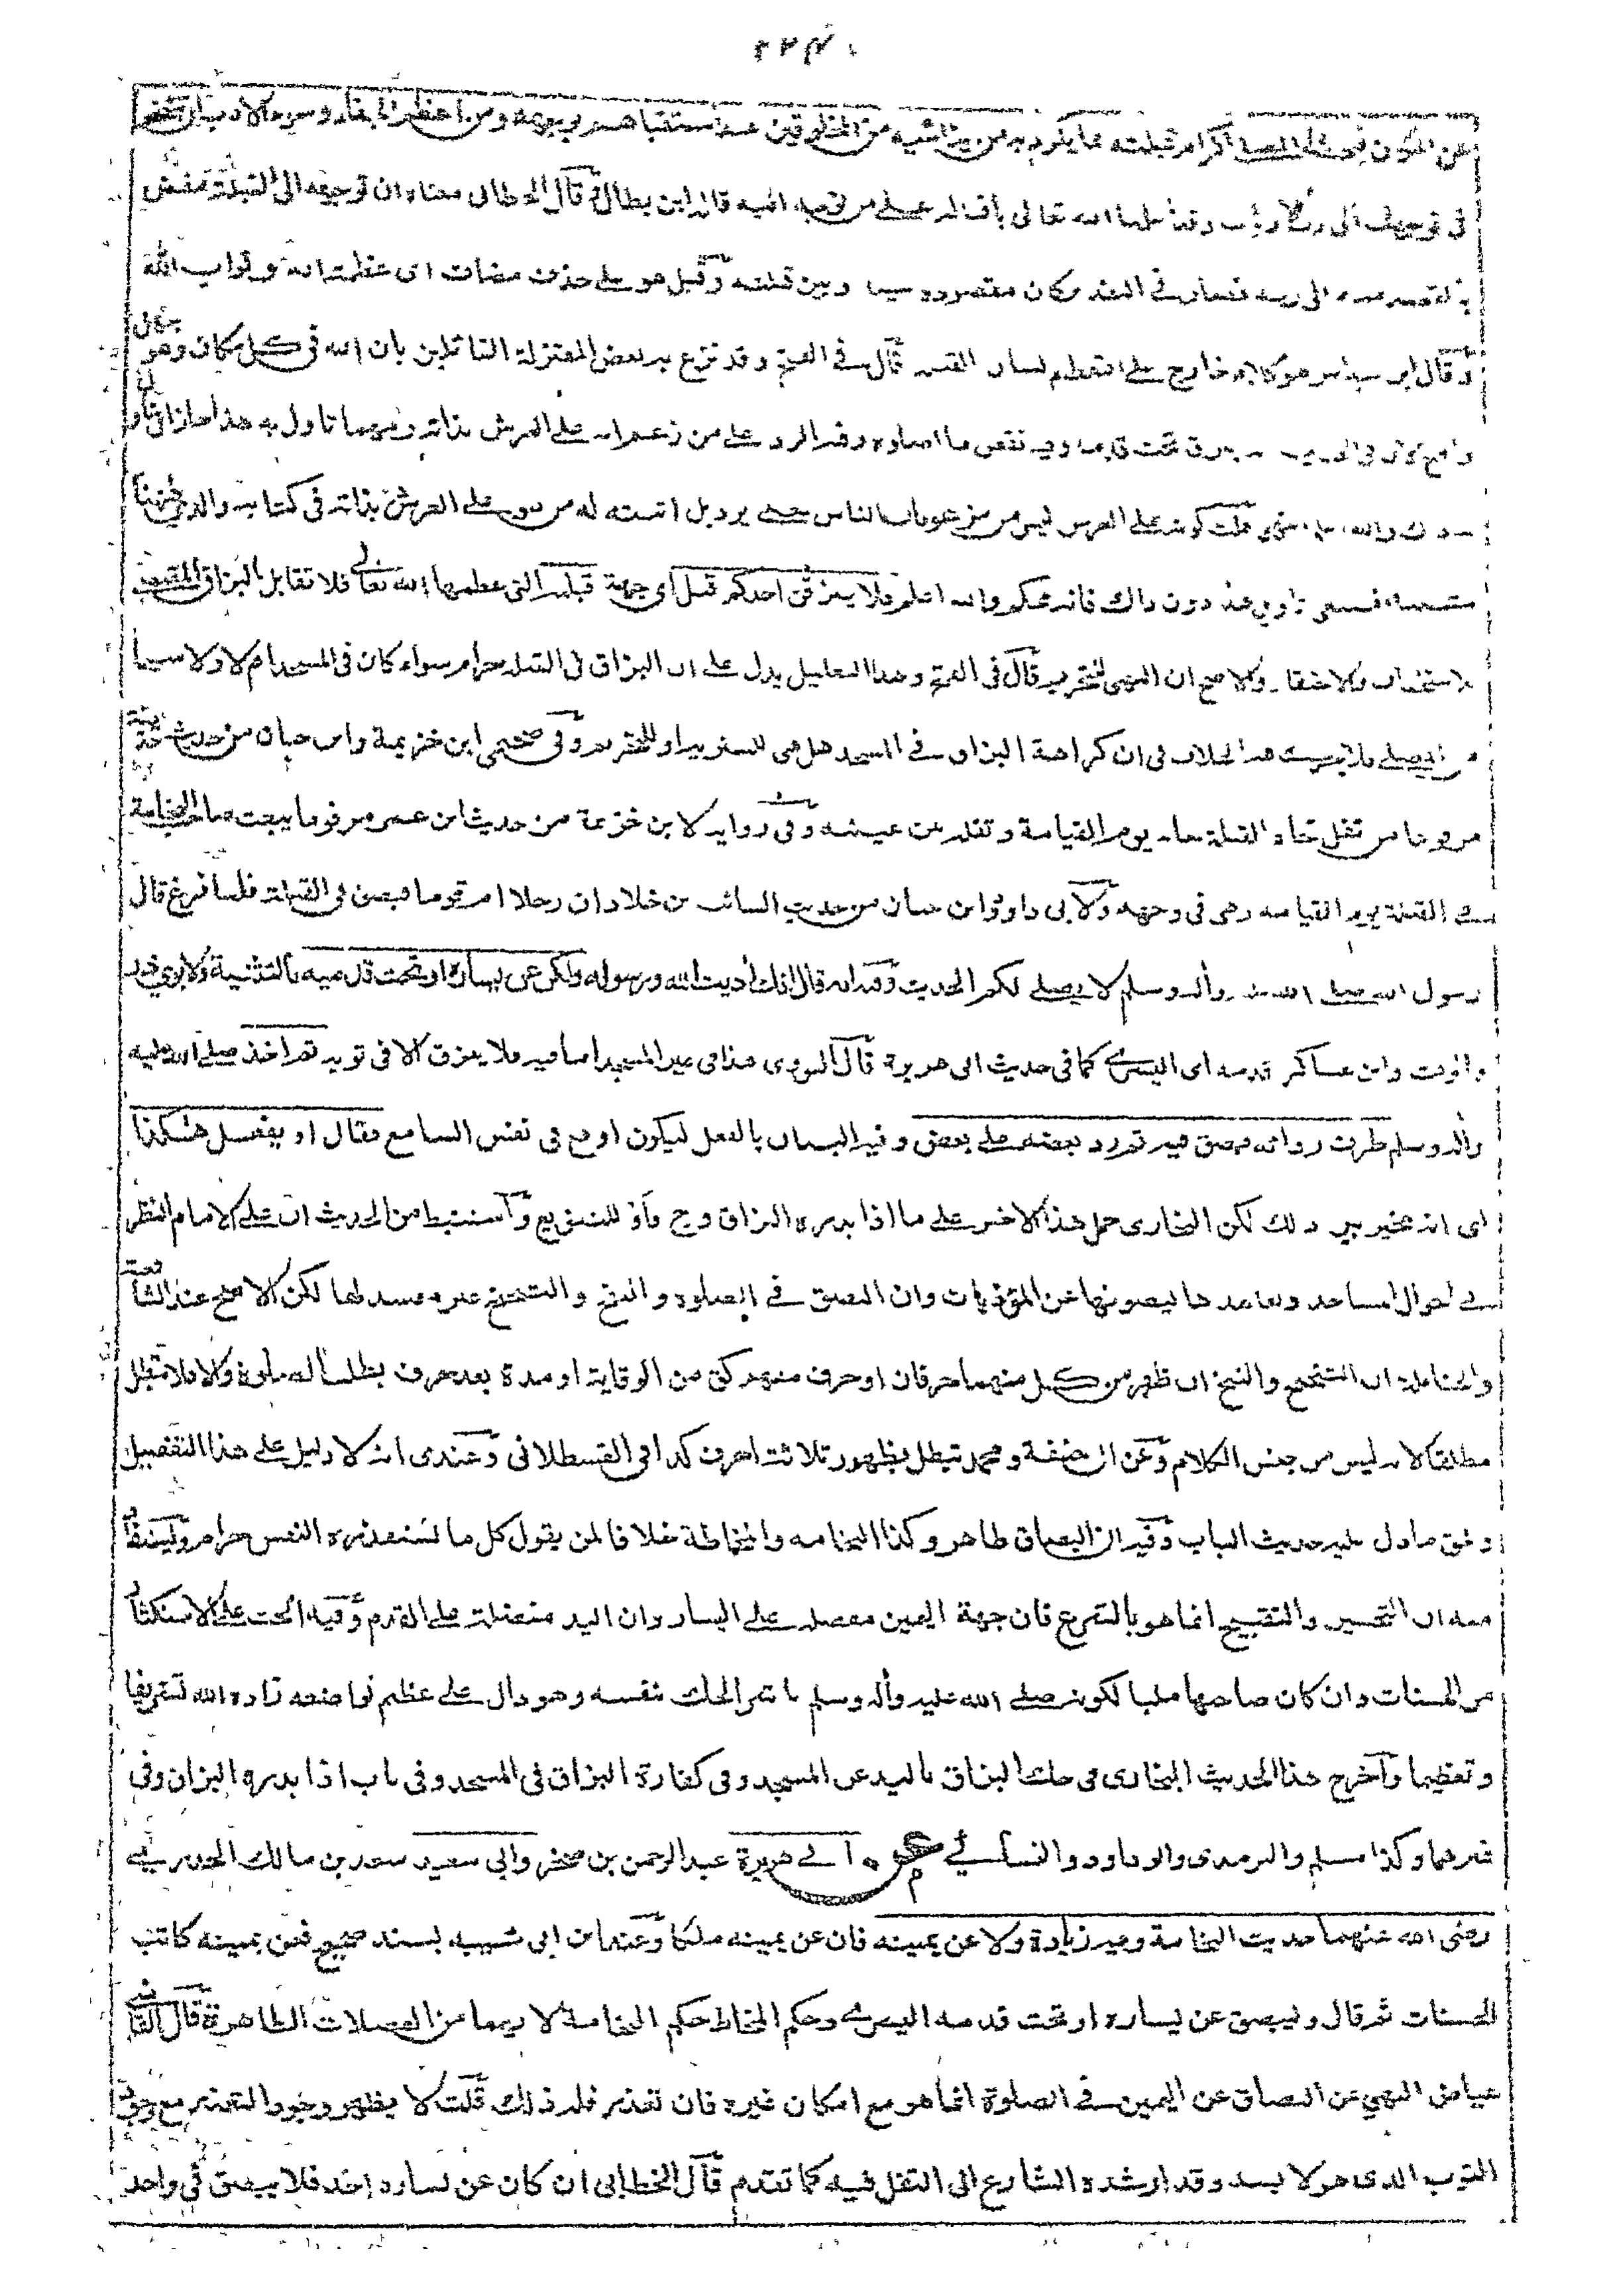 عن المصلى اكرام قبلته عما يكره من المخلوقين عند استقبالهم بوجهه ومن اعظم الجفاء وسوء الادب ان تتنخم
فى توجهك الى رب الارباب وقد اعلمنا الله تعالى باقباله على من توجه اليه قاله ابن بطال وقال الخطابى معناه ان توجهه الى القبلة مفض
بالقصد منه الى ربه فصار فى التقدير كان مقصوده بينه وبين قبلته وقيل هو على حذف مضاف اى عظمة الله او ثواب الله
وقال ابن عبد البر هو كلام خارج على التعظيم لشان القبلة قال فى الفتح وقد نزع به بعض المعتزلة القائلين بان الله فى كل مكان وهو جهل
واضح لان فى الحديث انه يبزق تحت قدمه وفيه نقض ما اصلوه وفيه الرد على من زعم انه على العرش بذاته ومهما تاول به هذا جاز ان يتاول
به ذاك والله اعلم قلت كونه على العرش ليس من مزعومات الناس حتى يرد بل اثبته له من هو على العرش بذاته فى كتابه
فانه محكم والله اعلم فلا يبزقن احدكم قبل اى جهة قبلته التى عظمها الله تعالى فلا تقابل بالبزاق المقتضى
للاستخفاف والاحتقار والاصح ان النهى للتحريم قال فى الفتح وهذا التعليل يدل على ان البزاق فى القبلة حرام سواء كان فى المسجد ام لا ولا سيما
من المصلى فلا يجرى هذا الخلاف فى ان كراهة البزاق فى المسجد هل هى للتنزيه او للتحريم وفى صحيحى ابن خزيمة وابن حبان من حديث حذيفة
مرفوعا من تفل تجاه القبلة جاء يوم القيامة وتفله بين عينيه وفى رواية لابن خزيمة من حديث ابن عمر مرفوعا يبعث صاحب النخامة
فى القبلة يوم القيامة وهى فى وجهه ولابى داود وابن حبان من حديث السائب بن خلاد ان رجلا ام قوما فبصق فى القبلة فلما فرغ قال
رسول الله صلى الله عليه وآله وسلم لا يصلى لكم الحديث وفيه انه قال انك أذيت الله ورسوله ولكن عن يساره او تحت قدميه بالتثنية ولابوى ذر
والوقت وابن عساكر قدمه اى اليسرى كما فى حديث ابى هريرة قال النووى هذا فى غير المسجد اما فيه فلا يبزق الا فى ثوبه ثم اخذ صلى الله عليه
وآله وسلم طرف ردائه فبصق فيه ثم رد بعضه على بعض وفيه البيان بالفعل ليكون اوقع فى نفس السامع فقال او يفعل هكذا
اى انه مخير بين ذلك لكن البخارى حمل هذا الاخير على ما اذا بدره البزاق وح فأو للتنويع وآستنبط من الحديث ان على الامام النظر
فى احوال المساجد وتعاهدها ليصونها عن المؤذيات وان البصق فى الصلوة والنفخ والتنحنح غير مفسد لها لكن الاصح عند الشافعية
والحنابلة ان التنحنح والنفخ ان ظهر من كل منهما حرفان او حرف مفهم كق من الوقاية او مدة بعد حرف بطلت الصلوة والا فلا تبطل
مطلقا لانه ليس من جنس الكلام وعن ابى حنيفة ومحمد تبطل بظهور ثلاثة احرف كذا فى القسطلانى وعندى انه لا دليل على هذا التفصيل
والحق ما دل عليه حديث الباب وفيه ان البصاق طاهر وكذا النخامة والمخاطة خلافا لمن يقول كل ما تستقذره النفس حرام وليستفاد
منه ان التحسين والتقبيح انما هو بالشرع فان جهة اليمين مفضلة على اليسار وان اليد مفضلة على القدم وفيه الحث على الاستكثار
من الحسنات وان كان صاحبها مليا لكونه صلى الله عليه وآله وسلم باشر الحك بنفسه وهو دال على عظم تواضعه زاده الله تشريفا
وتعظيما وآخرج هذا الحديث البخارى فى حك البزاق باليد من المسجد وفى كفارة البزاق فى المسجد وفى باب اذا بدره البزاق وفى
غيرهما وكذا مسلم والترمذى وابو داود والنسائى عن ابى هريرة عبد الرحمن بن صخر وابى سعيد سعد بن مالك الخدرى
رضى الله عنهما حديث النخامة وفيه زيادة ولا عن يمينه فان عن يمينه ملكا وعند ابن ابى شيبة بسند صحيح فعن يمينه كاتب
الحسنات ثم قال وليبصق عن يساره او تحت قدمه اليسرى وحكم المخاط حكم النخامة لانهما من الفضلات الطاهرة قال القاضى
عياض النهى عن البصاق عن اليمين فى الصلوة انما هو مع امكان غيره فان تعذر فله ذلك قلت لا يظهر وجود التعذر مع وجود
الثوب الذى هو لابسه وقد ارشده الشارع الى التفل فيه كما تقدم قال الخطابى ان كان عن يساره احد فلا يبصق فى واحد